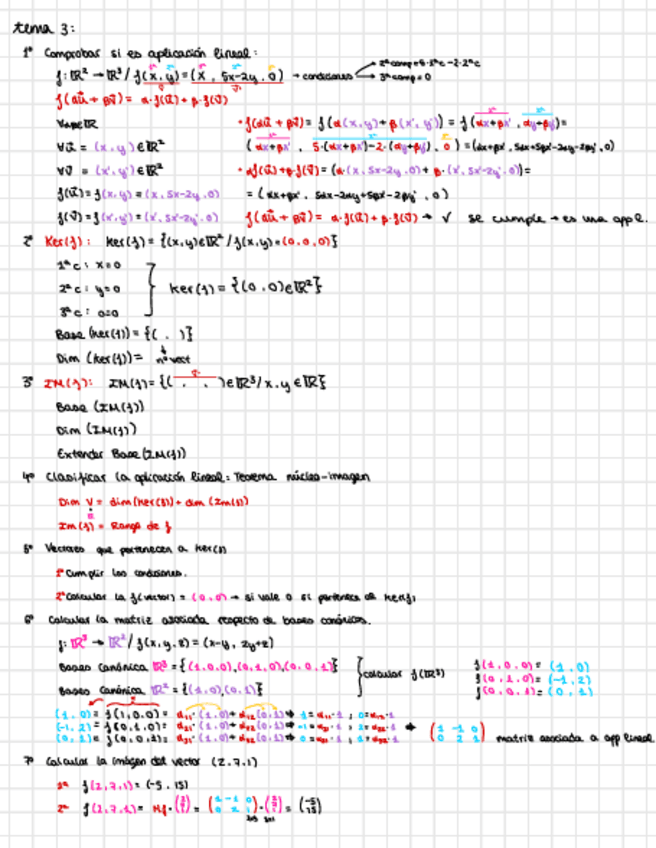 tema 3:
1º Comprobar si es aplicación lineal:
f: ℝ² → ℝ³ / f(x, y) = (x, 5x-2y, 0) → condiciones
3ª comp = 0
f(αū + βv̄) = α·f(ū) + β·f(v̄)
∀α,β∈ℝ
• f(αū + βv̄) = f(α(x,y) + β(x', y')) = f(αx+βx', αy+βy') =
∀ū = (x, y) ∈ ℝ²
(αx+βx', 5·(αx+βx')-2·(αy+βy'), 0) = (αx+βx', 5αx+5βx'-2αy-2βy', 0)
∀v̄ = (x', y') ∈ ℝ²
• αf(ū)+β·f(v̄) = (α·(x, 5x-2y, 0) + β·(x', 5x'-2y', 0)) =
f(ū) = f(x, y) = (x, 5x-2y, 0)
= (αx+βx', 5αx-2αy+5βx'-2βy', 0)
f(v̄) = f(x', y') = (x', 5x'-2y', 0)
f(αū + βv̄) = α·f(ū) + β·f(v̄) → √ se cumple → es una appl.
2º Ker(f): Ker(f) = {(x,y)∈ℝ² / f(x,y) = (0,0,0)}
1ª c: x=0
2ª c: y=0
Ker(f) = {(0,0)∈ℝ²}
3ª c: 0=0
Base (Ker(f)) = {( , )}
Dim (Ker(f)) = nº vect
3º IM(f): IM(f) = {( , , )∈ℝ³ / x, y ∈ℝ}
Base (IM(f))
Dim (IM(f))
Extender Base (IM(f))
4º Clasificar la aplicación lineal: Teorema núcleo-imagen
Dim V = dim(Ker(f)) + dim (Im(f))
Im(f) = Rango de f
5º Vectores que pertenecen a Ker(f)
1º Cumplir las condiciones.
2º Calcular la f(vector) = (0,0) → si vale 0 sí pertenece al Ker(f)
6º Calcular la matriz asociada respecto de bases canónicas.
f: ℝ³ → ℝ² / f(x,y,z) = (x-y, 2y+z)
Bases Canónica ℝ³ = {(1,0,0),(0,1,0),(0,0,1)}
calcular f(ℝ³)
f(1,0,0) = (1,0)
f(0,1,0) = (-1,2)
f(0,0,1) = (0,1)
Bases Canónica ℝ² = {(1,0),(0,1)}
(1,0) = f(1,0,0) = α₁₁·(1,0) + α₁₂(0,1)
(-1,2) = f(0,1,0) = α₂₁·(1,0) + α₂₂(0,1)
(0,1) = f(0,0,1) = α₃₁·(1,0) + α₃₂(0,1)
(1 -1 0
0 2 1) matriz asociada a app lineal
7º Calcular la imagen del vector (2,7,1)
1º f(2,7,1) = (-5, 15)
2º f(2,7,1) = Mf·(2 7 1) = (1 -1 0 / 0 2 1)·(2 7 1) = (-5 15)